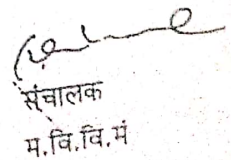 संचालक
म.वि.वि.मं